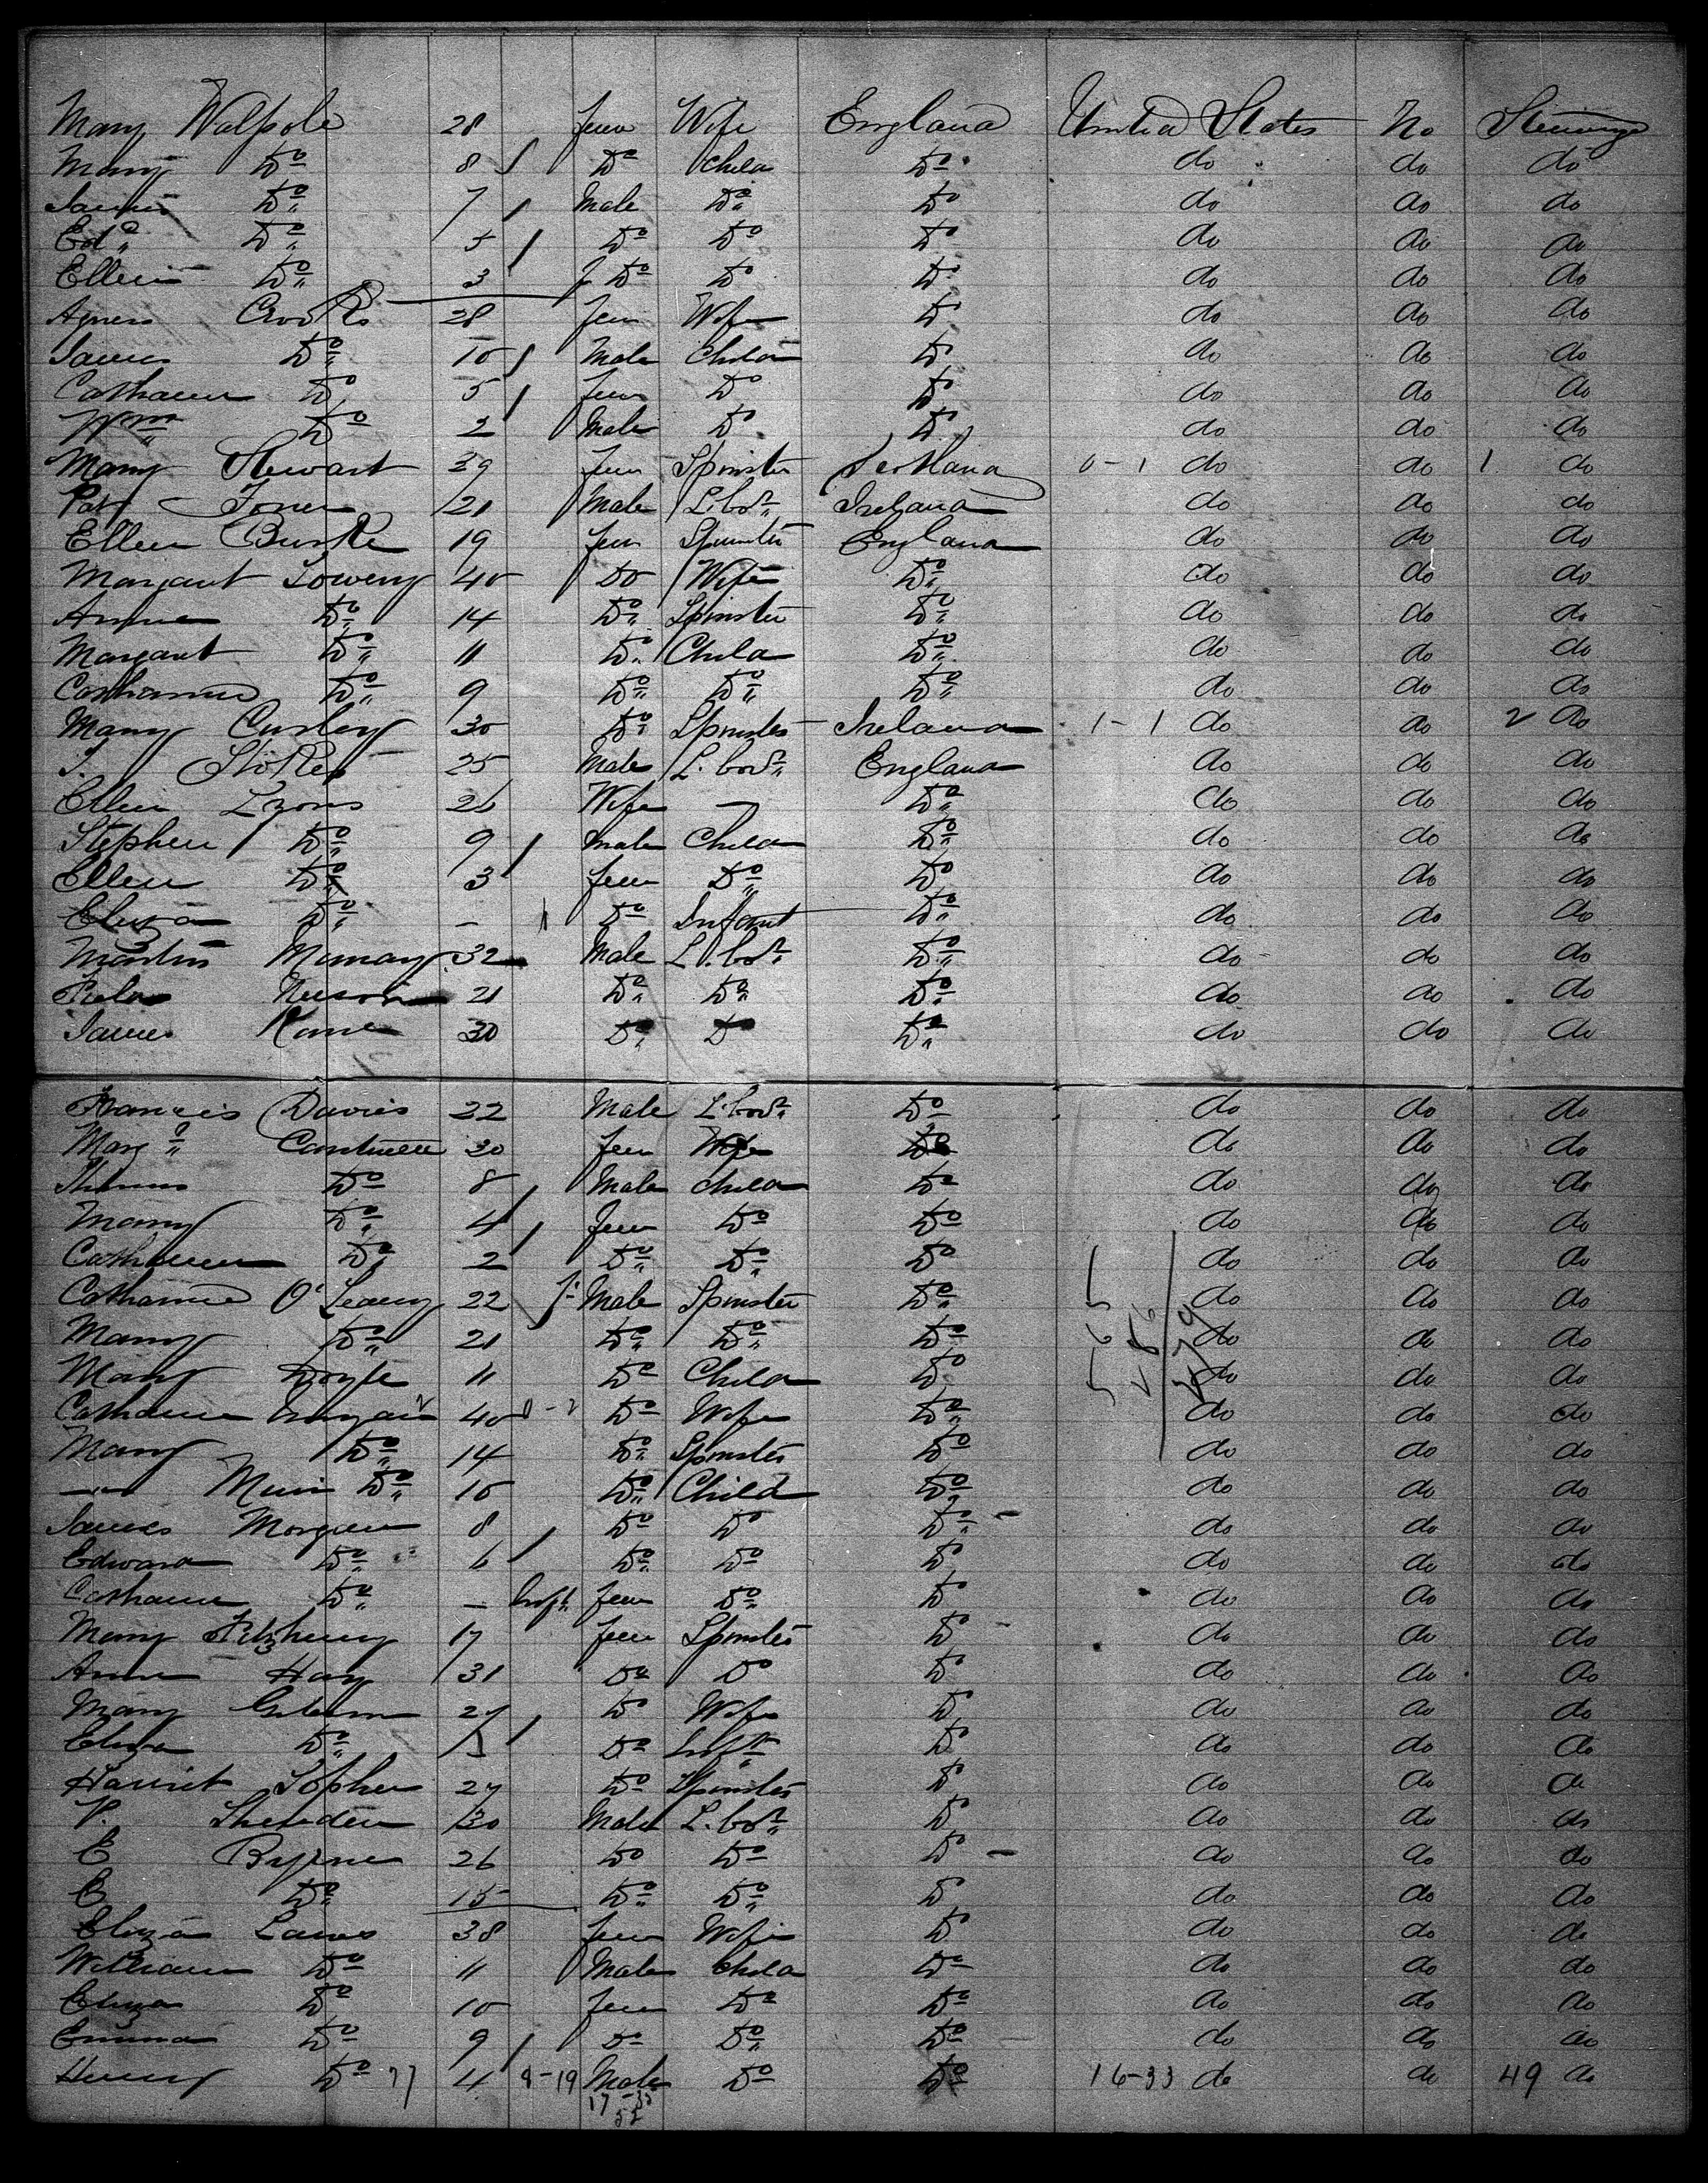 Mary Walpole 28 Fem Wife England United States No Steerage
Mary Do 8 Do Child Do do do do
James Do 7 Male Do Do do do do
Edd Do 5 Do Do Do do do do
Ellen Do 3 F Do Do Do do do do
Agnes Crooks 28 Fem Wife Do do do do
James Do 10 Male Child Do do do do
Catharine Do 5 Fem Do Do do do do
Wm Do 2 Male Do Do do do do
Mary Stewart 29 Fem Spinster Scotland 0-1 do do 1 do
Pat 21 Male L.bor Ireland do do do
Ellen Burke 19 Fem Spinster England do do do
Margaret Lowery 40 Do Wife Do do do do
Annie Do 14 Do Spinster Do do do do
Margaret Do 11 Do Child Do do do do
Catharine Do 9 Do Do Do do do do
Mary Curley 30 Do Spinster Ireland 1-1 do do 2 do
J. Stokes 25 Male L.bor England do do do
Ellen Lyons 26 Wife — Do do do do
Stephen Do 9 Male Child Do do do do
Ellen Do 3 Fem Do Do do do do
Eliza Do — Do Infant Do do do do
Martin Murray 32 Male L.bor Do do do do
21 Do Do Do do do do
James Kane 30 Do Do Do do do do
Francis Davies 22 Male L.bor Do do do do
Marg 30 Fem Wife Do do do do
Thomas Do 8 Male Child Do do do do
Mary Do 4 Fem Do Do do do do
Catharine Do 2 Do Do Do do do do
Catharine O'Leary 22 F Male Spinster Do do do do
Mary Do 21 Do Do Do do do do
Mary Doyle 11 Do Child Do do do do
Catharine 40 0-2 Do Wife Do do do do
Mary Do 14 Do Spinster Do do do do
Do 10 Do Child Do do do do
James Morgan 8 Do Do Do do do do
Edward Do 6 Do Do Do do do do
Catharine Do — Inft Fem Do Do do do do
Mary Fitzhenry 17 Fem Spinster Do do do do
Anne Hay 31 Do Do Do do do do
Mary 27 Do Wife Do do do do
Eliza Do Do Inft Do do do do
Harriet Sopher 27 Do Spinster Do do do do
P. Sheriden 30 Male L.bor Do do do do
E Byrne 26 Do Do Do do do do
E Do 15 Do Do Do do do do
Eliza Laws 38 Fem Wife Do do do do
William Do 11 Male Child Do do do do
Eliza Do 10 Fem Do Do do do do
Emma Do 9 Do Do Do do do do
Henry Do 77 4 8-19 Male Do Do 16-33 do do 49 do
17-35
52
565
286
279